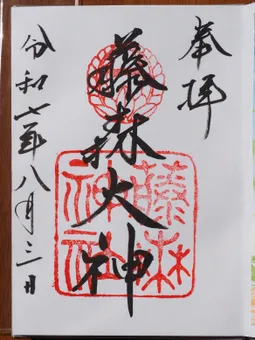 奉拝
藤森大神
藤森神社
令和七年八月三日